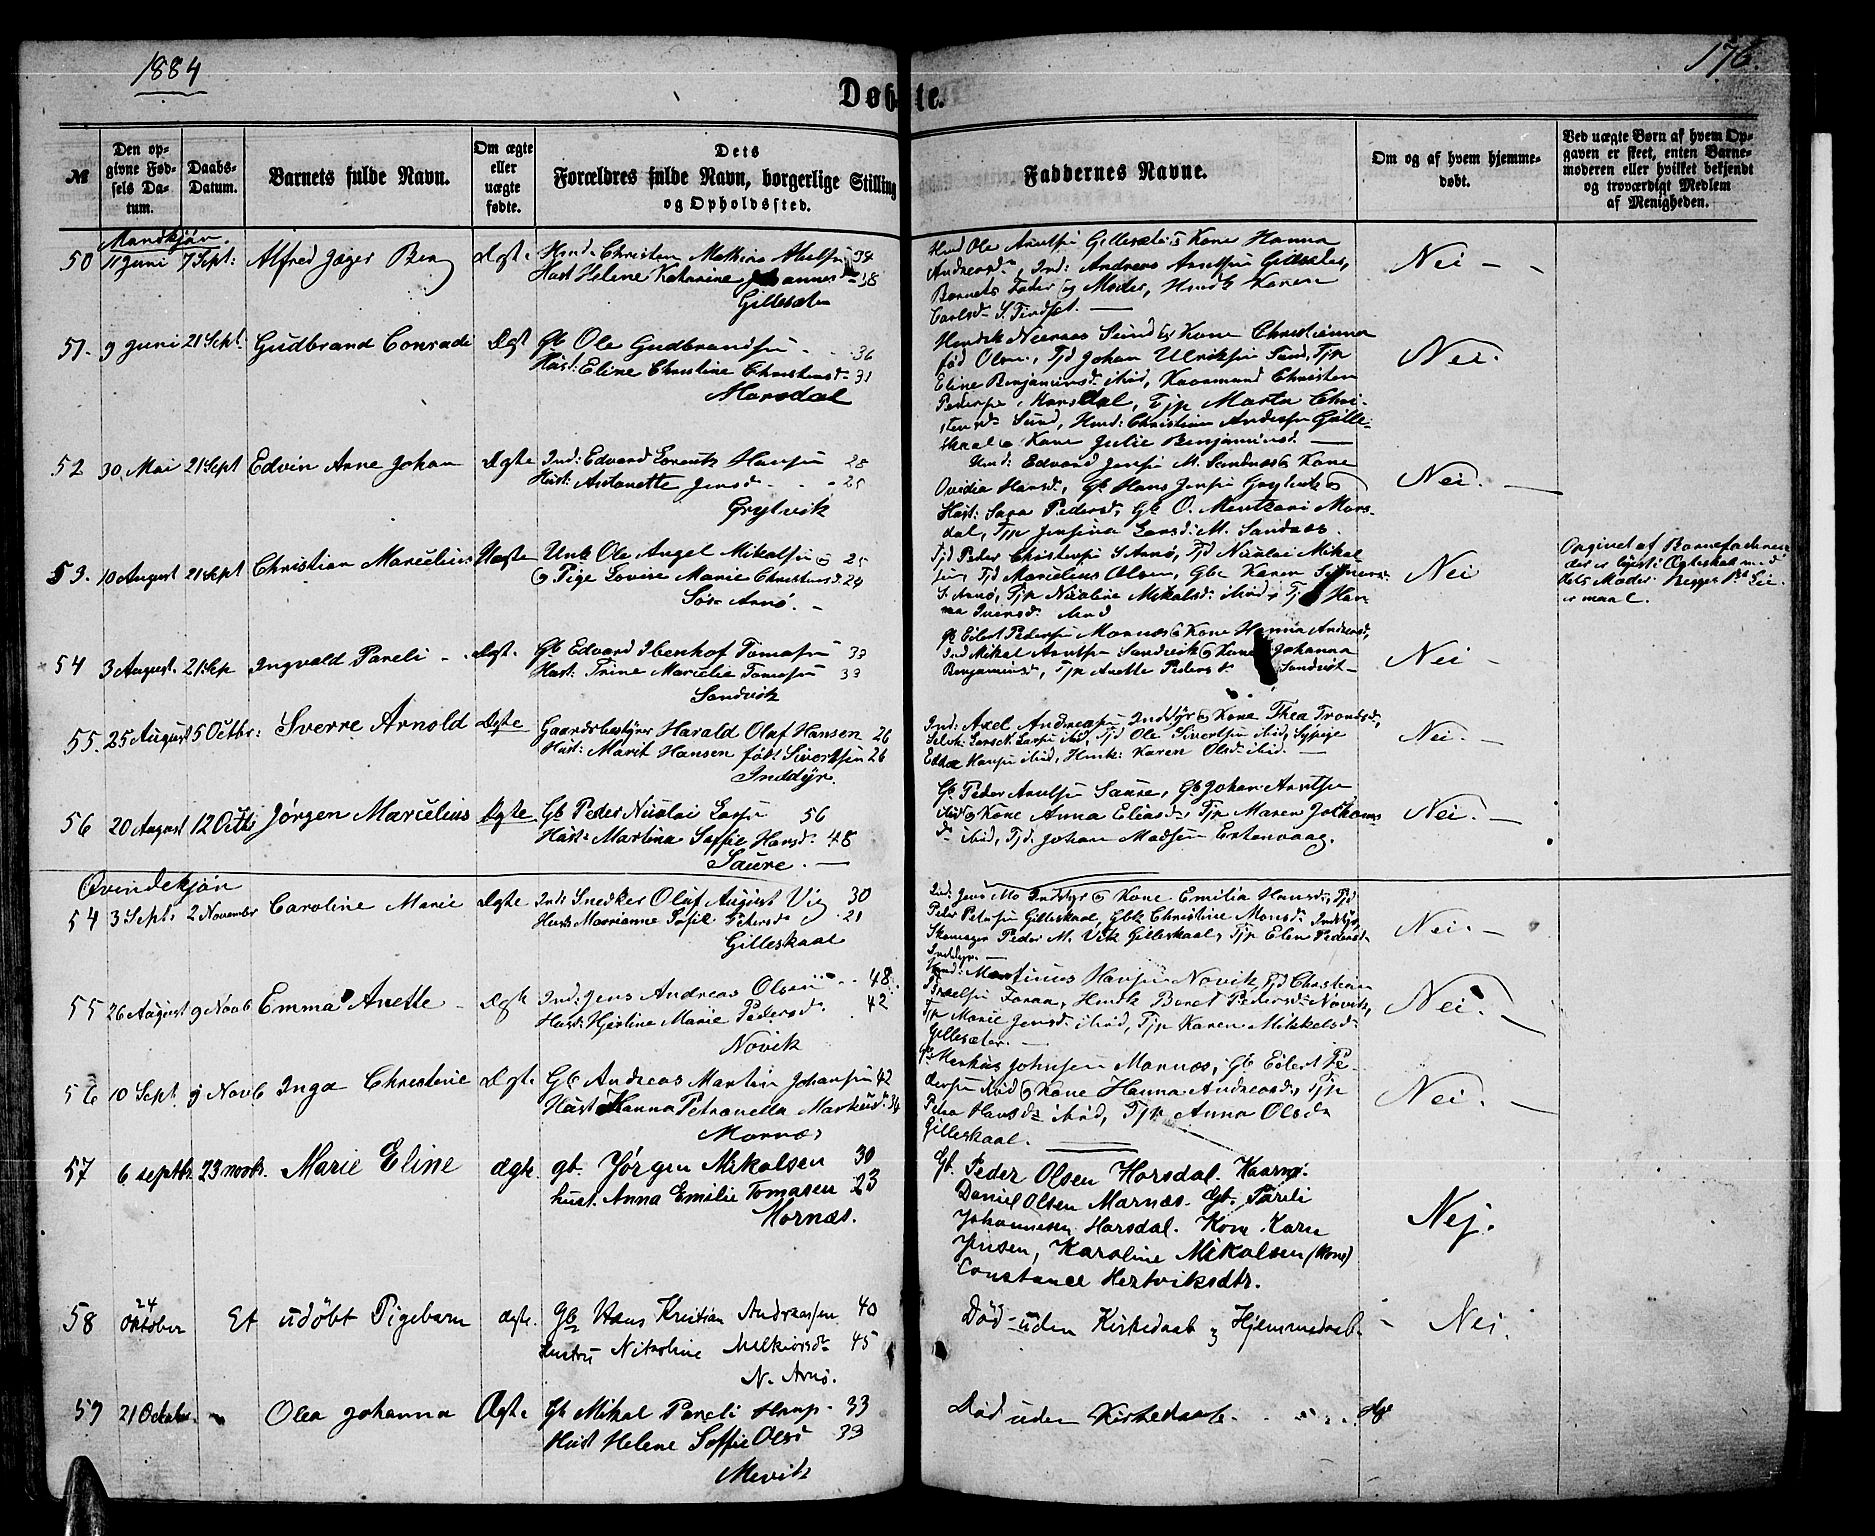 1884
176.
Døbte.
№
Den opgivne Fødsels Datum.
Daabs-Datum.
Barnets fulde Navn.
Om ægte eller uægte fødte.
Dets Forældres fulde Navn, borgerlige Stilling og Opholdssted.
Faddernes Navne.
Om og af hvem hjemmedøbt.
Ved uægte Børn af hvem Opgaven er skeet, enten Barnemoderen eller hvilket bekjendt og troværdigt Medlem af Menigheden.
Mandkjøn.
50 11 Juni 7 Sept: Alfred Jæger Berg Ægte
Christen Mathias 34
Hust Helene Katharine Johannesd 38
Gillesæter
Ole Arntsen Gillesæter og Kone Hanna
Andreasd, Ind: Andreas Arntsen Gillesæter,
Barnets Fader og Moder, Karen
Carlsd
Nei
51. 9 Juni 21 Sept. Gudbrand Conrad Ægt
Gb Ole Gudbrandsen 36
Hust: Eline Christine Christensd 31
Morsdal
Sund og Kone Christianna
fød Olsen, Tjd Johan Ulriksen Sund, Tjp
Eline Benjaminsd ibid, Christen
Pedersen, Morsdal, Tjp Marta Chri-
stensd Sund, Christian Andersen Gille-
skaal og Kone Julie Benjaminsd
Nei.
52 30 Mai 21 Sept Edvin Arne Johan Ægte
Ind: Edvard Lorentz Hansen 28
Hust: Antonette Jensd 25
Grytvik
Edvard Jensen M. Sandnæs og Kone
Ovidia Hansd, Gb Hans Jensen Grytvik og
Hust: Sara Pedersd, Gb O. Mentzoni Mors-
dal, Tjp Jensina Larsd: M. Sandnæs.
Nei.
53. 10 August 21 Sept Christian Marcelius Uægte
Unk Ole Angel Mikalsen 25
og Pige Lovise Marie Christensd 24
Sør Arnø.
Tjd Peder Christensen S. Arnø, Tjd Nicolai Mikal
sen, Tjd Marcelius Olsen, Karen
S. Arnø, Tjp Nicoline Mikalsd: ibid, Tjp Han-
na Iversd ibid
Nei
Opgivet af Barnefaderen
54 3 August. 21 Sep Ingvald Pareli Ægt.
Gb Edvard Ibenhof Tomasen 33
Hust: Trine Marcelie Tomasen 33
Sandvik
Gb Eilert Pedersen Mornæs og Kone Hanna Andreasd,
Ind Mikal Arntsen Sandvik og Kone Johanna
Benjaminsd, Tjp Anette Pedersd Sandvik
Nei
55. 25 August 5 Octbr: Sverre Arnold Ægte
Gaardsbestyrer Harald Olaf Hansen 26
Hust: Marit Hansen født Sivertsen 26
Inddyr.
Ind: Axel Andreasen Inddyr og Kone Thea Trondsd,
Larsen ibid, Tjd Ole Sivertsen ibid, Sypige
Hansen ibid, Karen Olsd: ibid.
Nei.
56 20 August 12 Octb Jørgen Marcelius Ægte
Gb Peder Nicolai Larsen 56
Hust: Martina Soffie Hansd: 48
Saure.
Gb Peder Arntsen Saure, Gb Johan Arntsen
ibid og Kone Anna Eliasd, Tjp Maren
ibid, Tjd: Johan Madsen Estenvaag.
Nei.
Qvindekjøn
54 3 Sept: 2 November Caroline Marie Ægte
Ind: Snedker Oluf August Vig 30
Hust: Marianne Sofie Pedersd 21
Gilleskaal
Ind: Jens Mo Inddyr og Kone Emilia Hansd, Tjd
Peter Petersen Gilleskaal, Christine Monsd: Inddyr,
Skomager Peder M. Vik Gilleskaal, Tjp Elen Pedersd
Inddyr.
Nei.
55 26 August 9 Novb Emma Anette Ægte
Ind: Jens Andreas Olsen 48.
Hust: Kjerline Marie Pedersd. 42
Novik
Martinus Hansen Novik, Tjd Christian
Beret Pedersd Novik,
Tjp Marie Jensd ibid, Tjp Karen Mikkelsd:
Gillesæter.
Nei.
56 10 Sept. 9 Novb Inga Christine Ægte
Gb Andreas Martin Johansen 42
Hust Hanna Petronella Markusd 34
Mornæs
Gb: Markus Johnsen Mornæs, Gb Eilert Pe-
dersen ibid og Kone Hanna Andreasd, Tjp
Petra Hansd ibid, Tjp Anna Olsd
Gilleskaal.
Nei.
57 6 septbr. 23 novbr. Marie Eline ægte.
gb. Jørgen Mikalsen 30
hust. Anna Emilie Tomasen 23
Mornæs.
Gb. Peder Olsen Horsdal.
Daniel Olsen Marnæs. Gb. Pareli
Johannesen Horsdal. Kone Karn
Jensen, Karoline Mikalsen (Kone)
Constance Hertviksdtr.
Nej.
58 24 Oktober Et udøbt Pigebarn ægte.
Gb Hans Kristian Andreassen 40
Hustru Nikoline Melkiorsd 45
N. Arnø.
Død uden Kirkedaab og Hjemmedaab.
Nei
59 21 October. Olea Johanna Ægte
Gb Mikal Pareli Hansen 33
Hust Helene Soffie Olsd 33
Mevik
Død uden Kirkedaab.